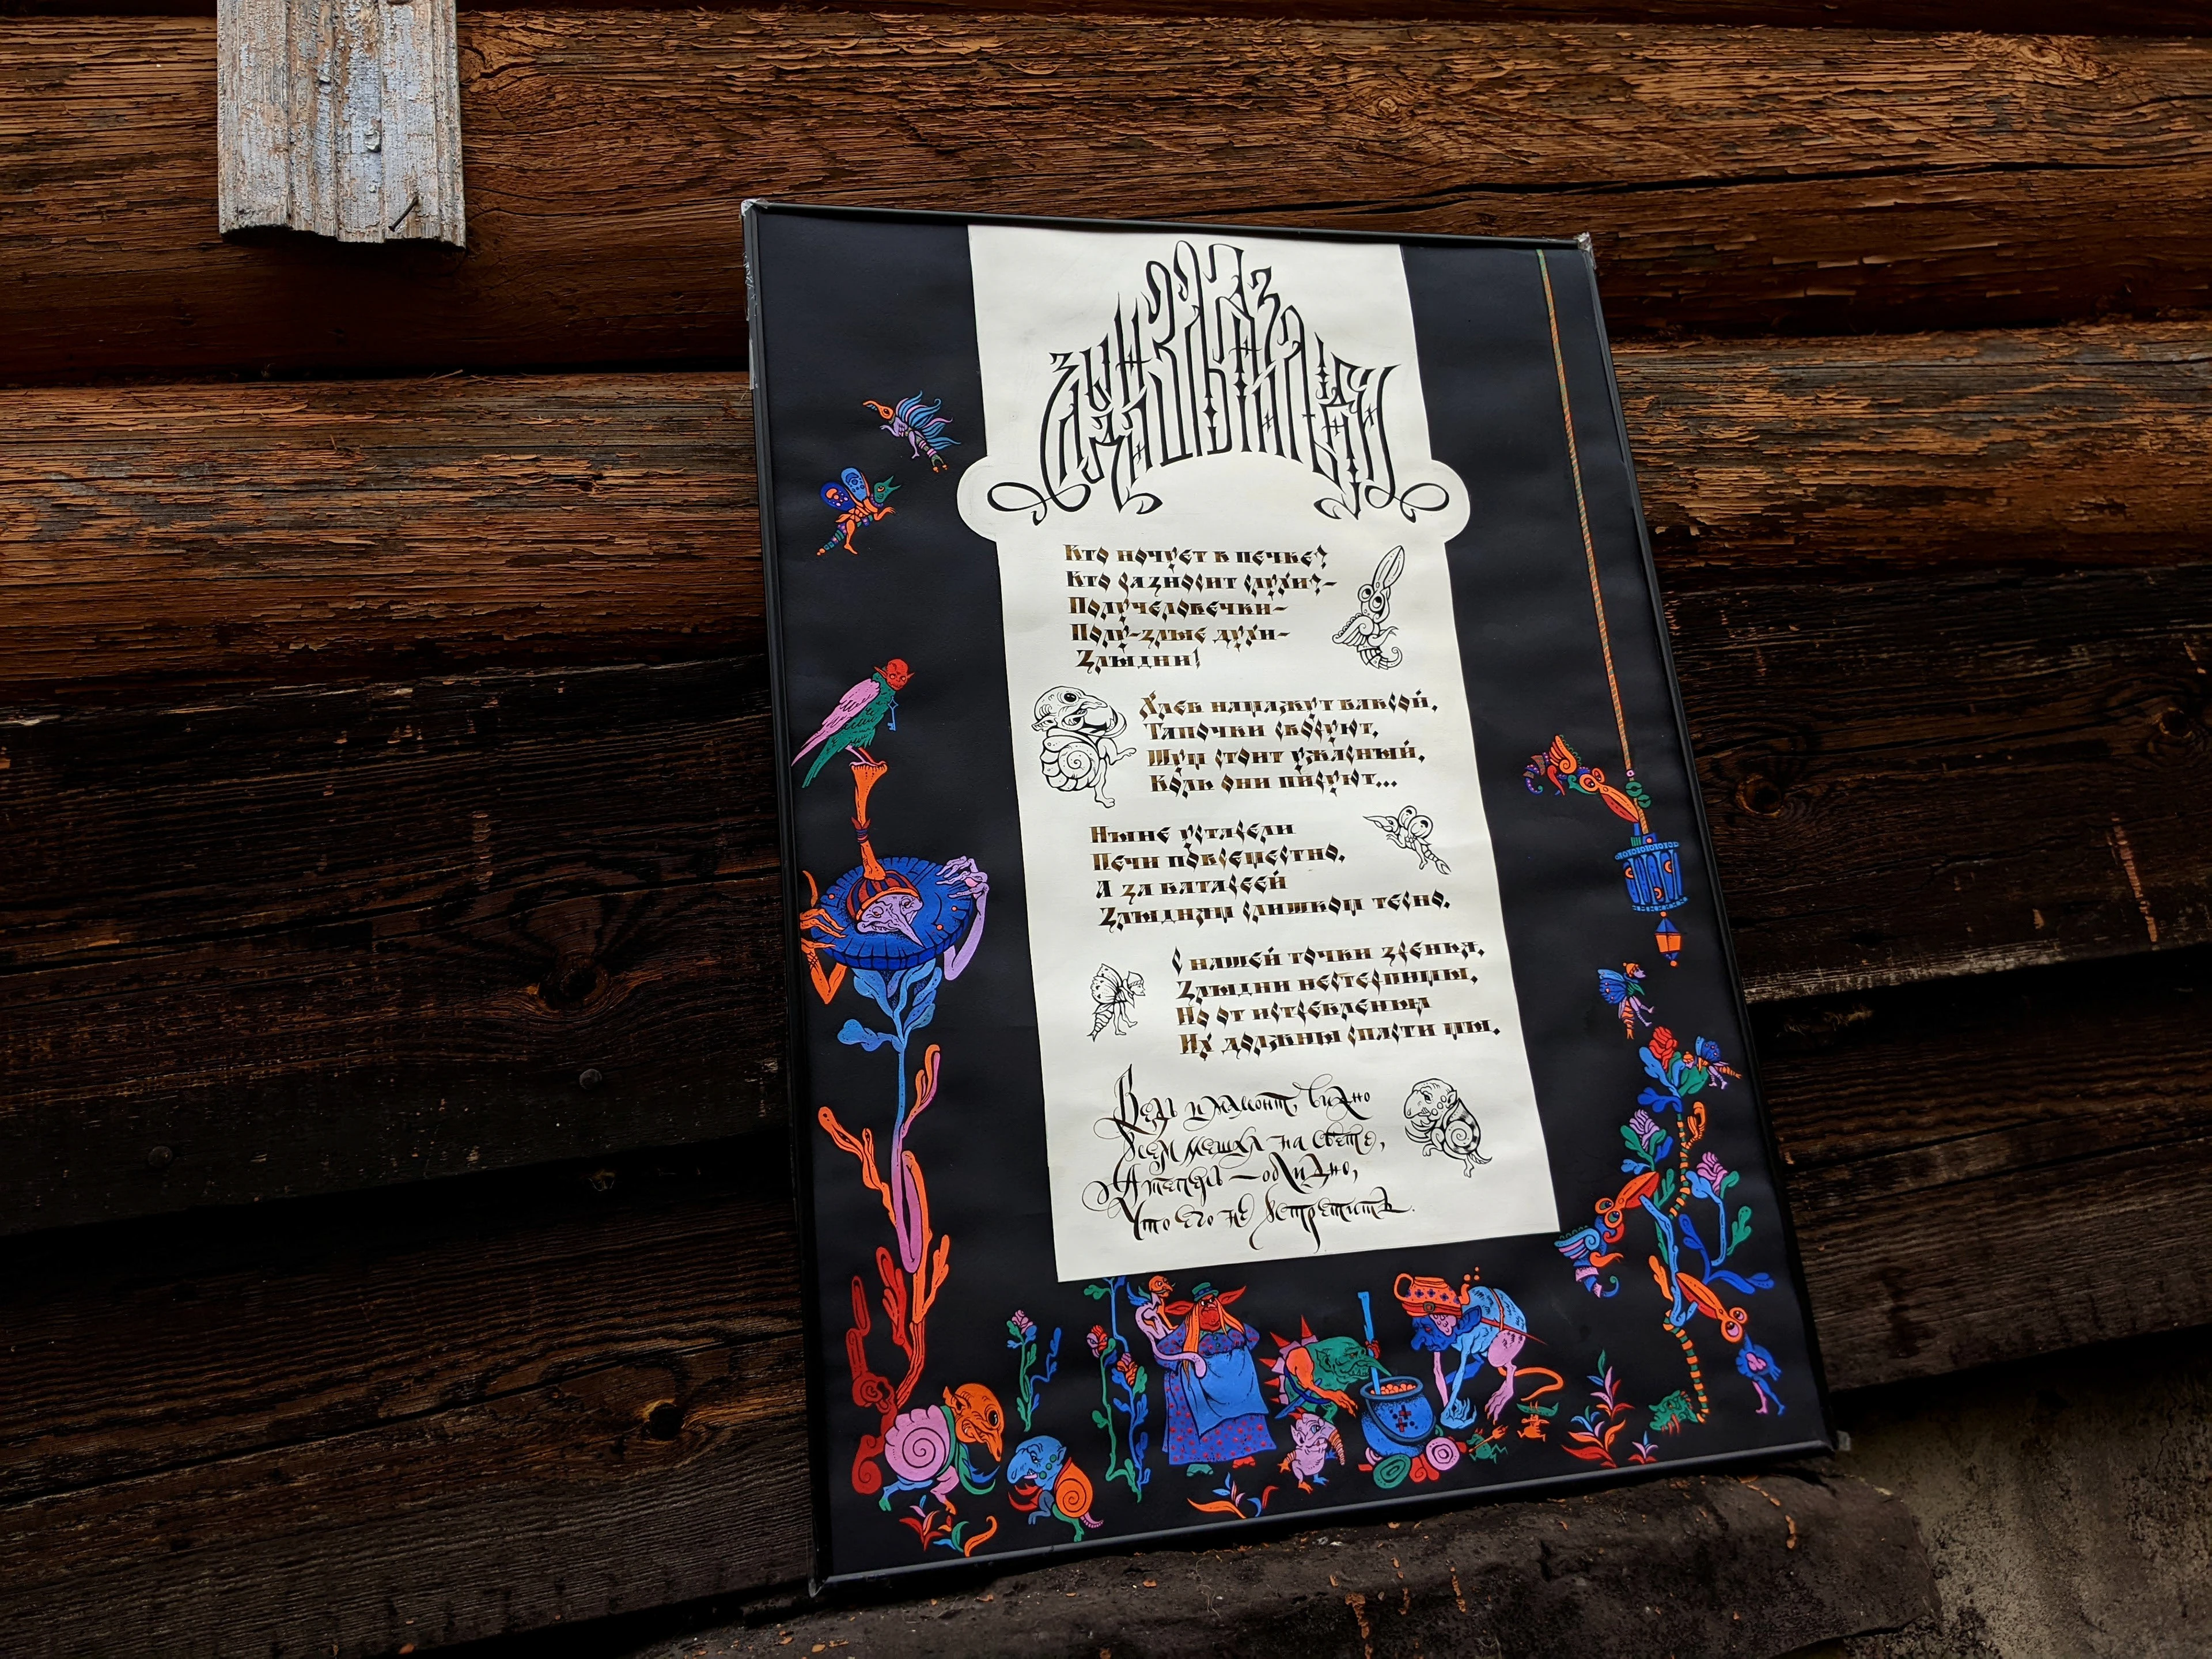 Кто ночует в печке?
Кто разносит слухи?–
Получеловечки–
Полу-злые духи–
Злыдни!
Хлеб намажут ваксой,
Тапочки своруют,
Шум стоит ужасный,
Коль они пируют...
Ныне устарели
Печи повсеместно,
А за батареей
Злыдням слишком тесно.
С нашей точки зренья,
Злыдни нестерпимы,
Но от истребленья
Их должны спасти мы.
Ведь и мамонт, видно
Всем мешал на свете,
А теперь — обидно,
Что его не встретить.